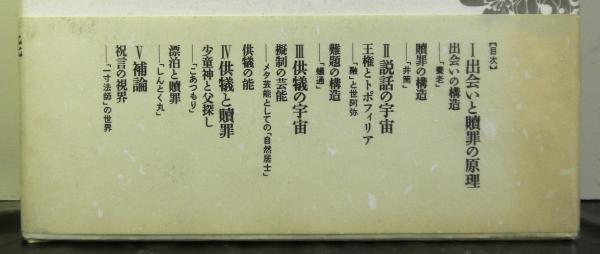 【目次】
Ⅰ 出会いと贖罪の原理
出会いの構造
──「養老」
贖罪の構造
──「井筒」
Ⅱ 説話の宇宙
王権とトポフィリア
──「融」と世阿弥
難題の構造
──「蟻通」
Ⅲ 供犠の宇宙
擬制の芸能
──メタ芸能としての「自然居士」
供犠の能
Ⅳ 供犠と贖罪
少童神と父探し
──「こあつもり」
漂泊と贖罪
──「しんとく丸」
Ⅴ 補論
祝言の視界
──「一寸法師」の世界